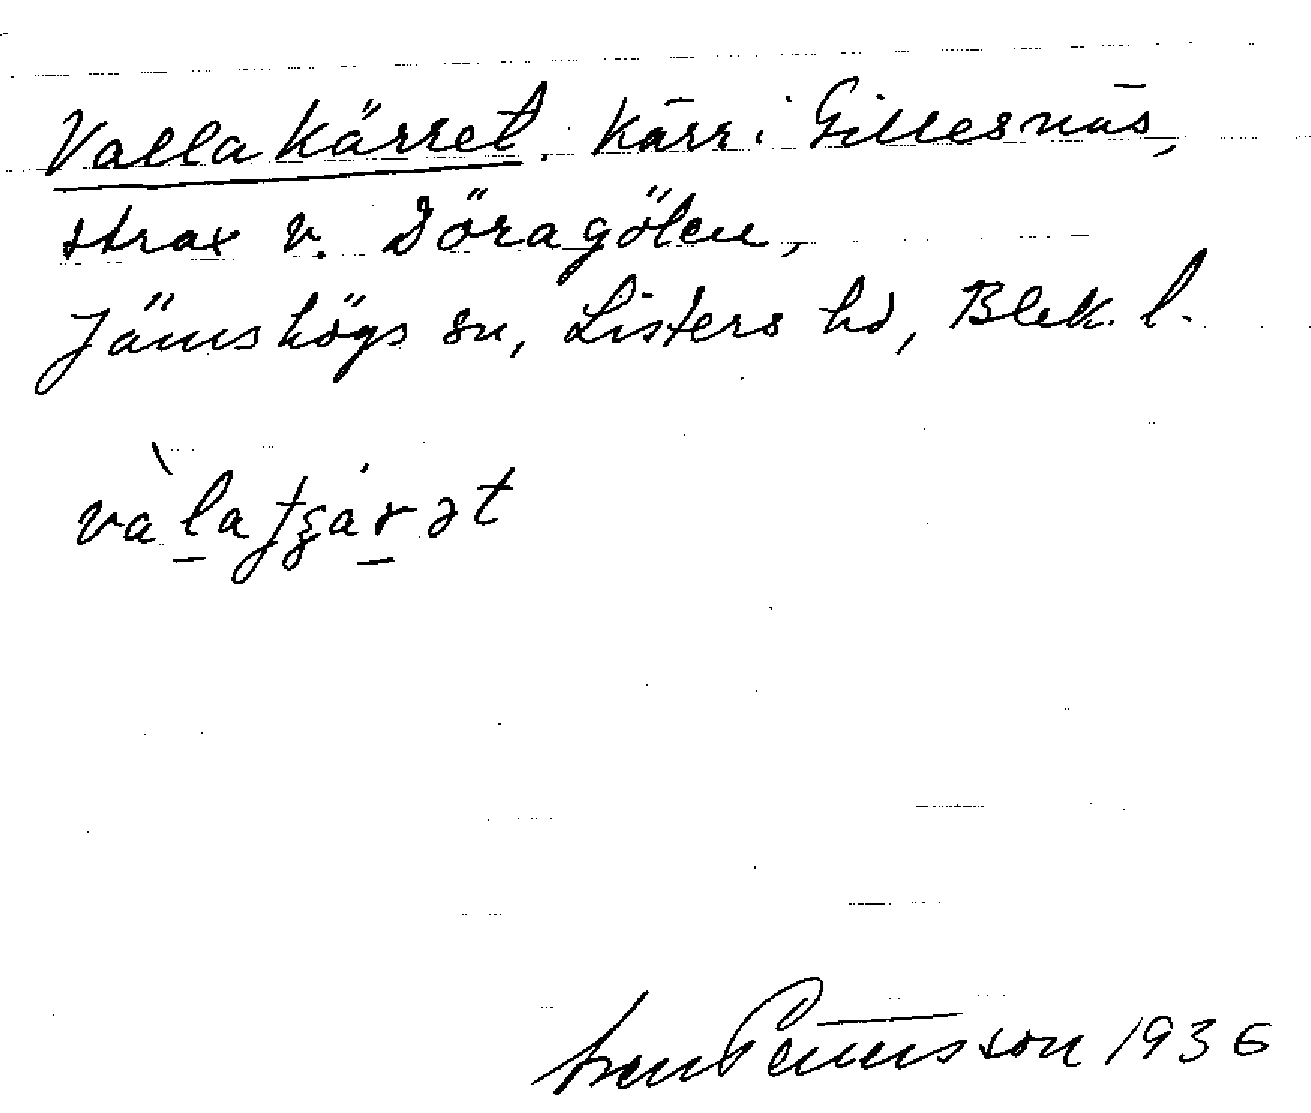 Vallakärret. Kärr i Gillesnäs,
strax v. Döragölen,
Jämshögs sn, Listers hd, Blek. l.
Pettersson 1936